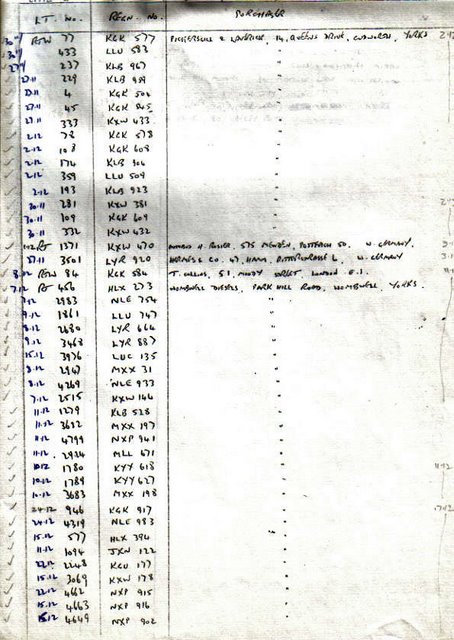 LT. No. REGN. No. PURCHASER
30/11 RTW 77 KGK 577 QUEENS DRIVE, CUDWORTH, YORKS
433 LLU 583 "
237 KLB 967 "
27.11 229 KLB 959 "
27.11 4 KGK 504 "
27.11 45 KGK 545 "
27.11 333 KXW 433 "
2.12 78 KGK 578 "
2.12 108 KGK 608 "
2.12 174 KLB 904 "
2.12 359 LLU 509 "
2.12 193 KLB 923 "
30.11 281 KXW 381 "
30.11 109 KGK 609 "
30.11 332 KXW 432 "
RT 1371 KXW 470 H. W. GERMANY
27.11 3501 LYR 920 HERMES CO. 47, HAMM, W. GERMANY
8.12 RTW 84 KGK 584 T. COLLINS, 51, STREET, LONDON E.1.
7.12 RT 456 HLX 273 WOMBWELL DIESELS, PARK HILL ROAD, WOMBWELL, YORKS.
7.12 2983 NLE 754 "
9.12 1861 LLU 747 "
8.12 2680 LYR 664 "
9.12 3468 LYR 887 "
15.12 3976 LUC 135 "
8.12 2947 MXX 31 "
8.12 4269 NLE 933 "
7.12 2515 KXW 144 "
11.12 1279 KLB 528 "
11.12 3682 MXX 197 "
11.12 4799 NXP 941 "
11.12 2924 MLL 671 "
10.12 1780 KYY 618 " 11.12
10.12 1789 KYY 627 "
10.12 3683 MXX 198 "
24.12 946 KGK 917 "
24.12 4319 NLE 983 "
15.12 577 HLX 394 "
11.12 1094 JXN 122 "
22.12 2248 KGU 177 "
15.12 3069 KXW 178 "
22.12 4662 NXP 915 "
15.12 4663 NXP 916 "
15.12 4649 NXP 902 "